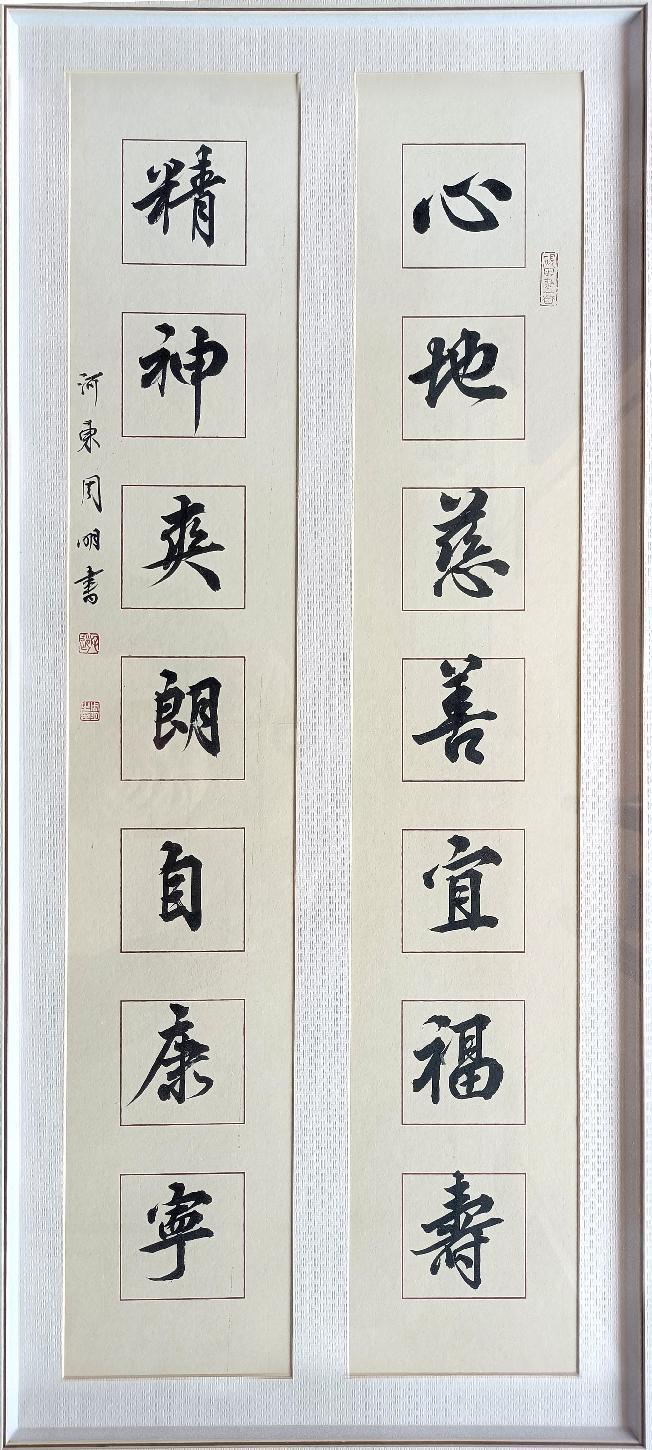 心地慈善宜福壽
精神爽朗自康寧
河東周明書